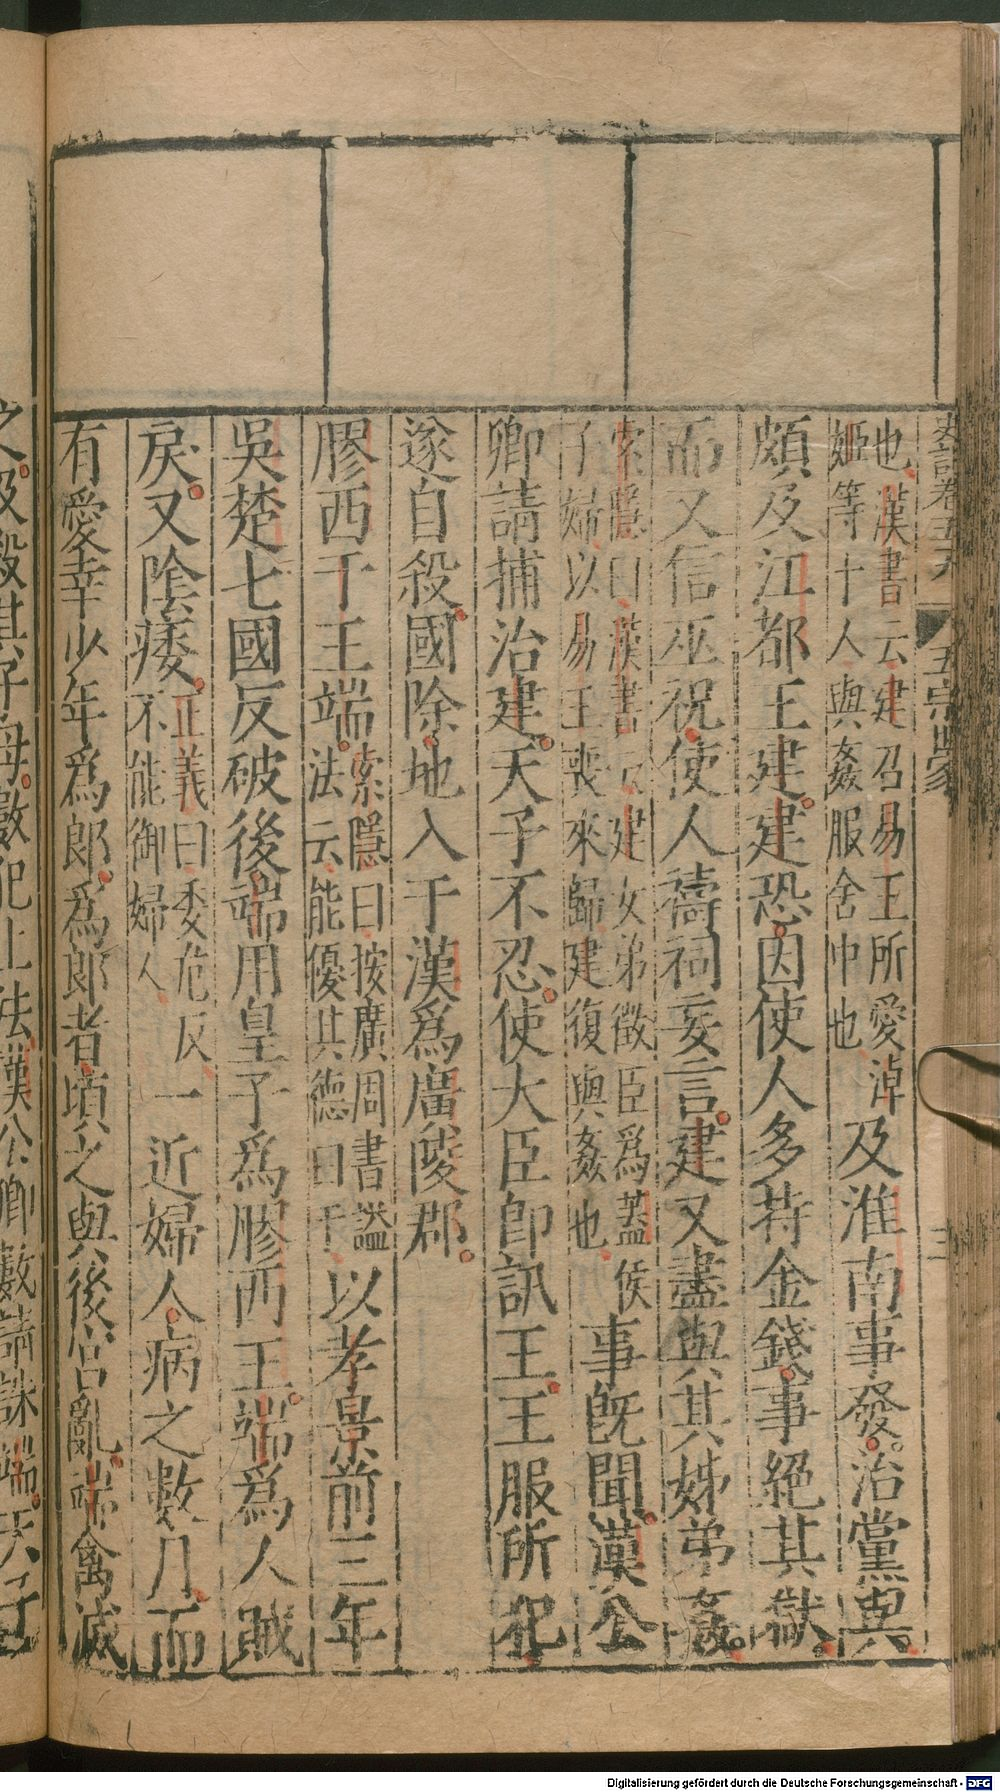 史記卷五十九 五宗世家 三
也漢書云建召易王所愛淖
姬等十人與姦服舍中也
及淮南事發治黨與
頗及江都王建建恐因使人多持金錢事絕其獄
而又信巫祝使人禱祠妄言建又盡與其姊弟姦
索隱曰漢書云建女弟徵臣為蓋侯
子婦以易王喪來歸建復與姦也
事既聞漢公
卿請捕治建天子不忍使大臣卽訊王王服所犯
遂自殺國除地入于漢爲廣陵郡
膠西于王端
索隱曰按廣周書謚
法云能優其德曰于
以孝景前三年
吳楚七國反破後端用皇子爲膠西王端爲人賊
戾又陰痿
正義曰委危反
不能御婦人
一近婦人病之數月而
有愛幸少年爲郎爲郎者頃之與後宮亂端禽滅
之及殺其子母數犯上法漢公卿數請誅端天子
Digitalisierung gefördert durch die Deutsche Forschungsgemeinschaft - DFG